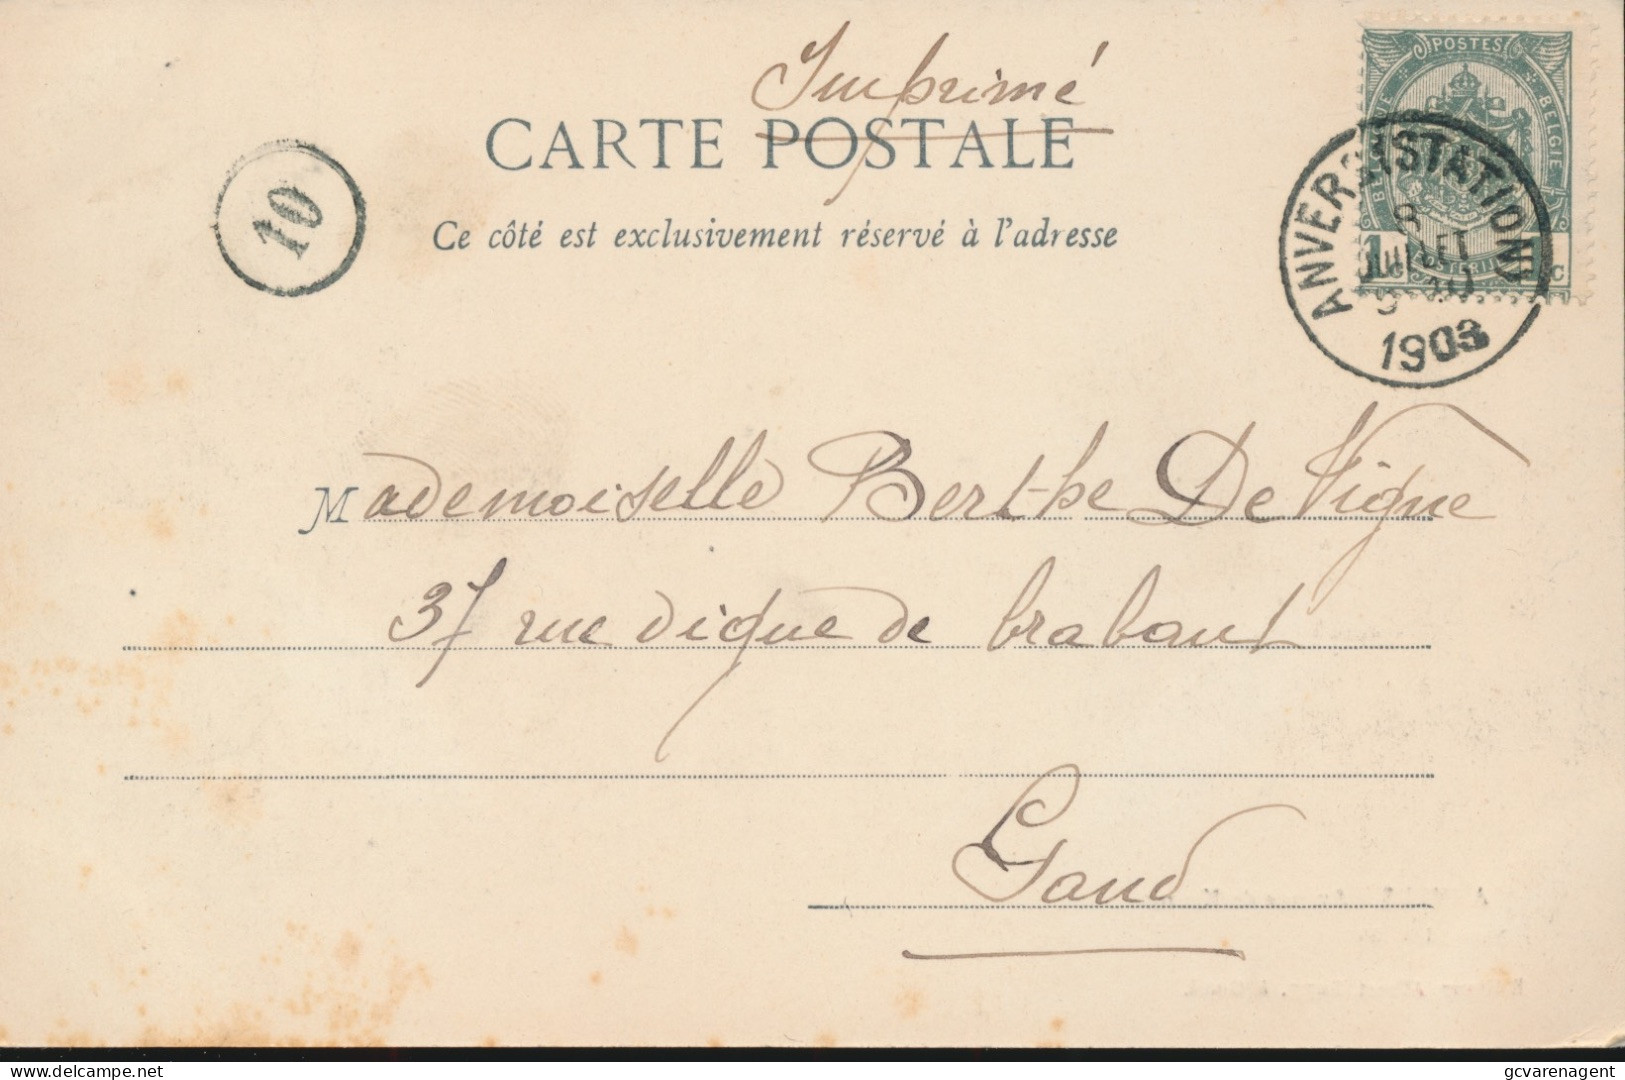 Imprimé
CARTE POSTALE
10
Ce côté est exclusivement réservé à l'adresse
POSTES
BELGIQUE
BELGIE
POSTERIJEN
ANVERS (STATION)
8
JUILLET
1903
Mademoiselle Berthe De Vigne
37 rue digue de brabant
Gand
delcampe.net
gcvarenagent